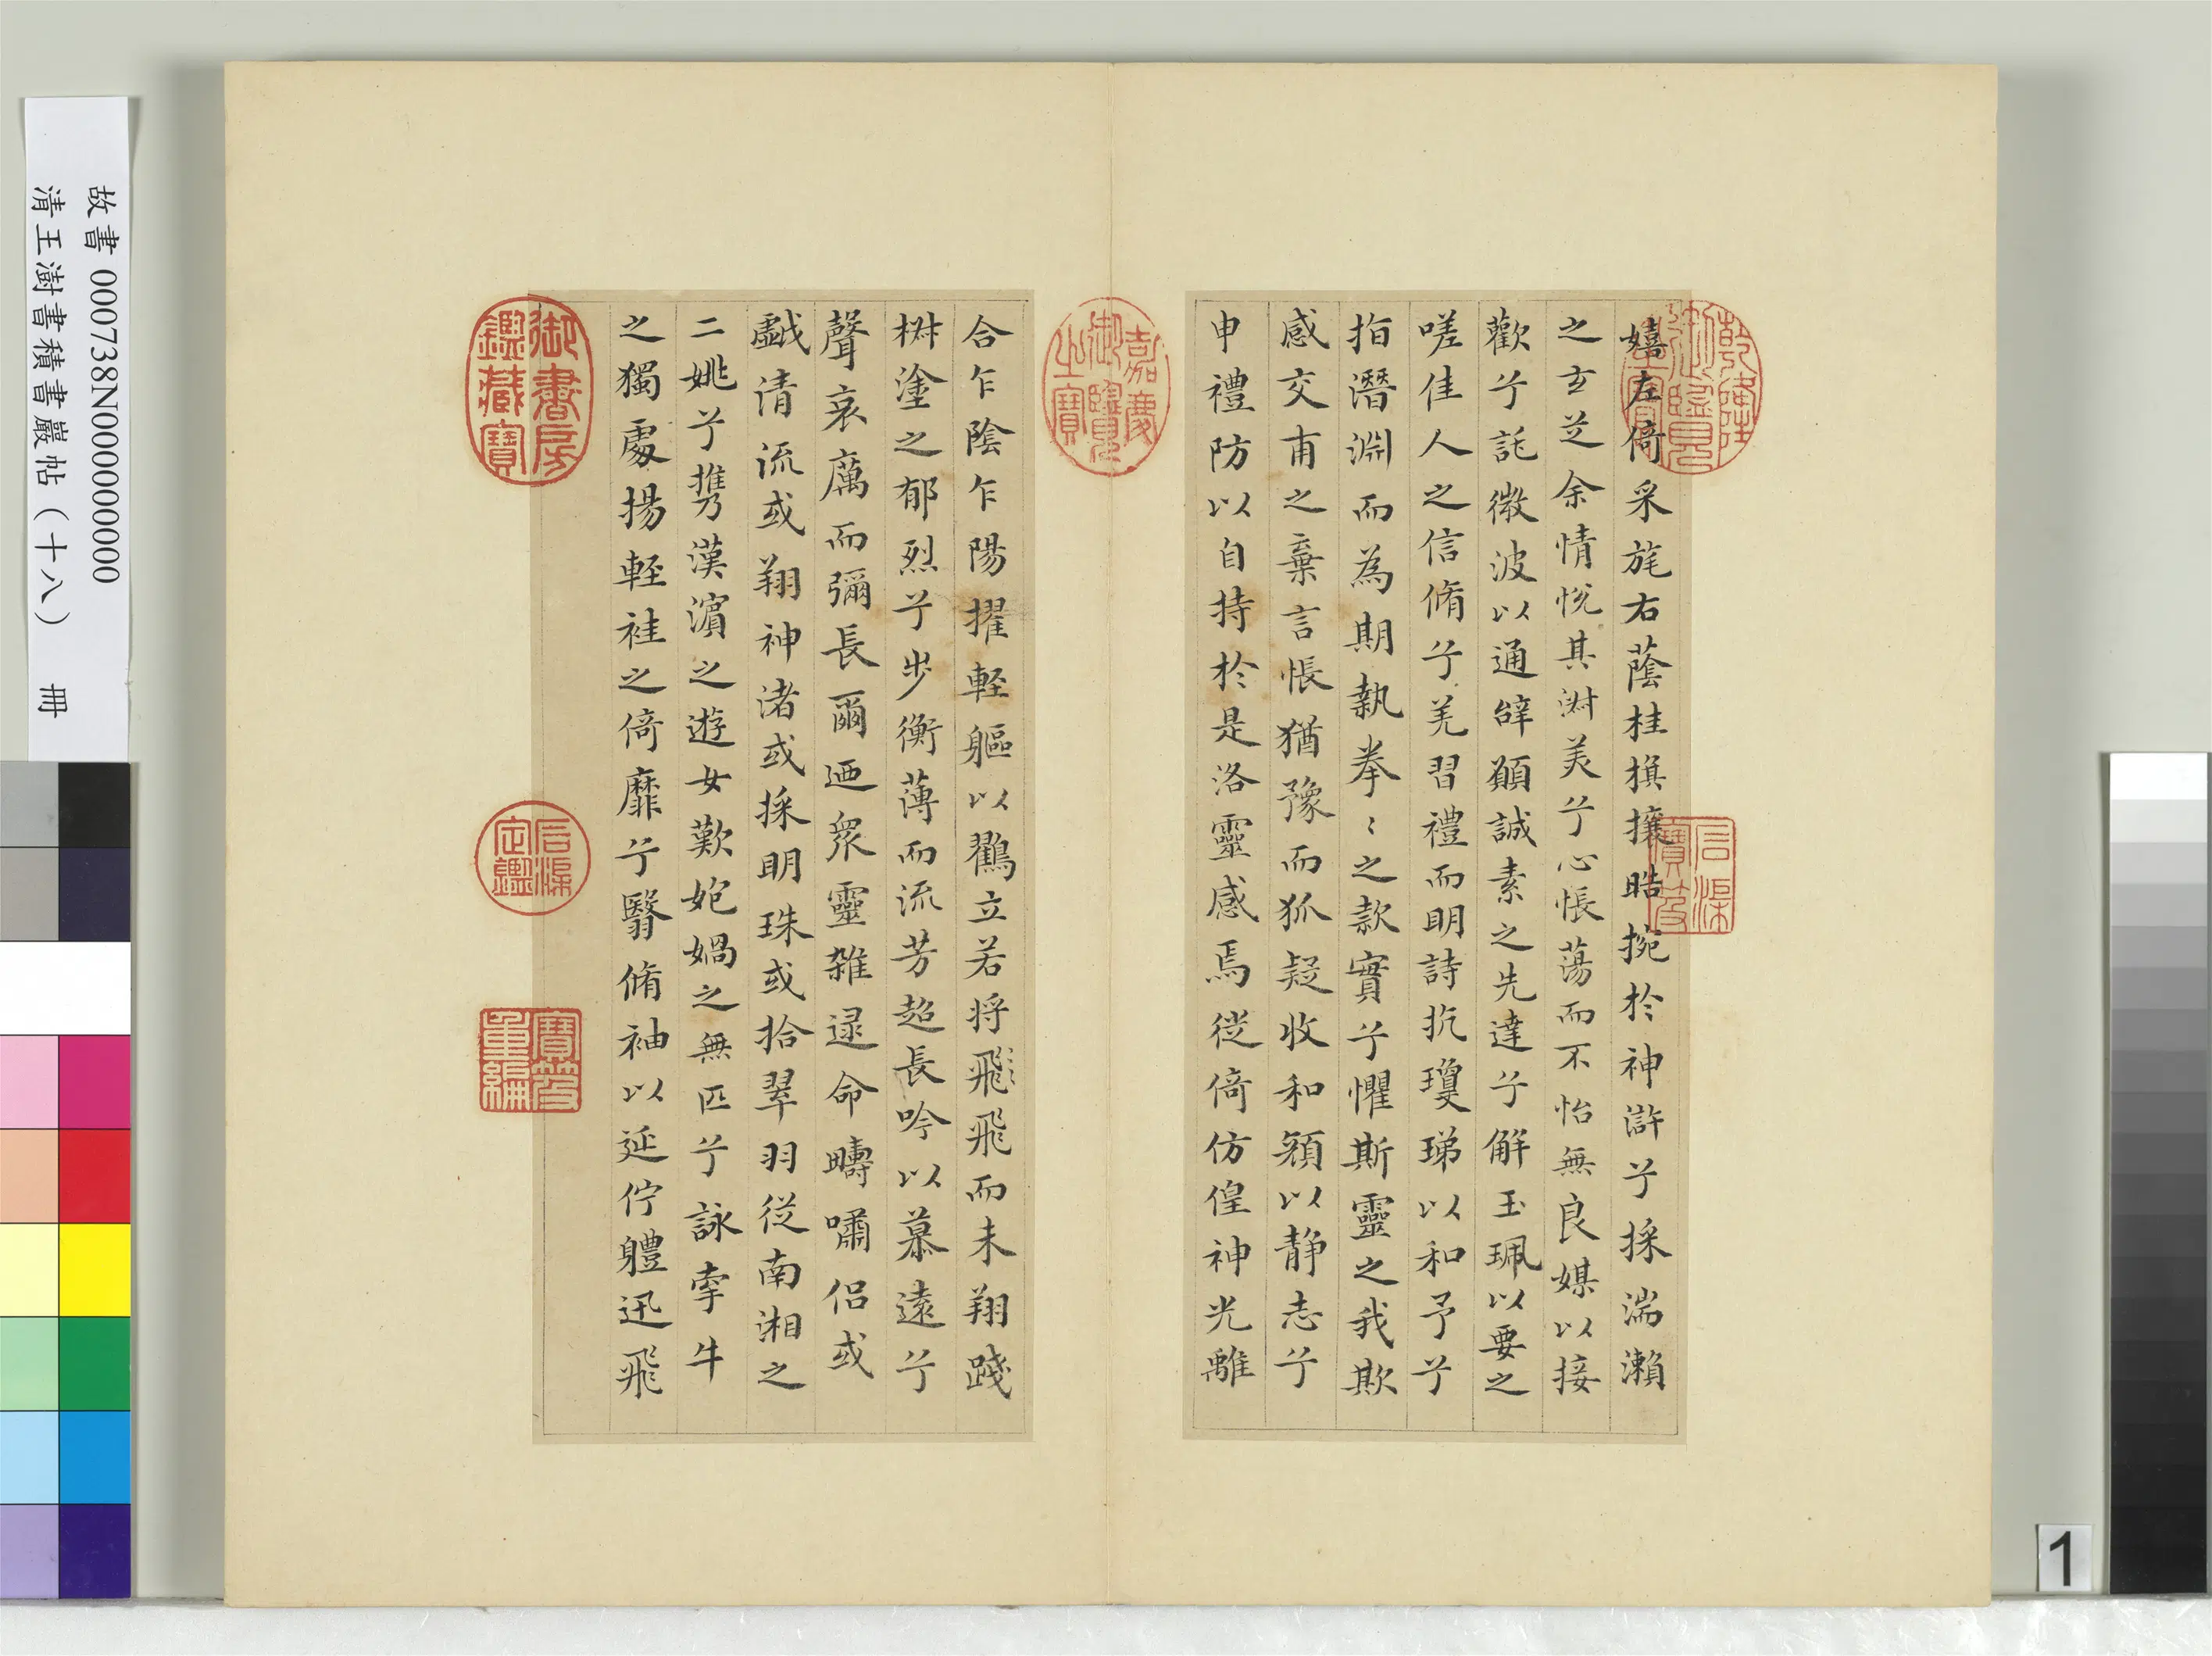 嬉左倚采旄右蔭桂旗攘晧捥於神滸兮採湍瀨
之玄芝余情悅其淑美兮心悵蕩而不怡無良媒以接
歡兮託微波以通辭願誠素之先達兮解玉珮以要之
嗟佳人之信脩兮羌習禮而明詩抗瓊珶以和予兮
指潛淵而為期執拳〻之款實兮懼斯靈之我欺
感交甫之棄言悵猶豫而狐疑收和顏以静志兮
申禮防以自持於是洛靈感焉從倚仿偟神光離
合乍陰乍陽擢軽軀以鸖立若将飛飛而未翔踐
椒塗之郁烈兮步衡薄而流芳超長吟以慕遠兮
聲哀厲而彌長爾迺衆靈雜逯命疇嘯侶或
戱清流或翔神渚或採明珠或拾翠羽從南湘之
二姚兮携漢濵之遊女歎㚿媧之無匹兮詠牽牛
之獨處揚軽袿之倚靡兮翳脩袖以延佇軆迅飛
乾隆御覽之寶
石渠寶笈
嘉慶御覽之寶
御書房鑑藏寶
石渠定鑑
寶笈重編
故書 000738N000000000
清王澍書積書巖帖（十八） 冊
1